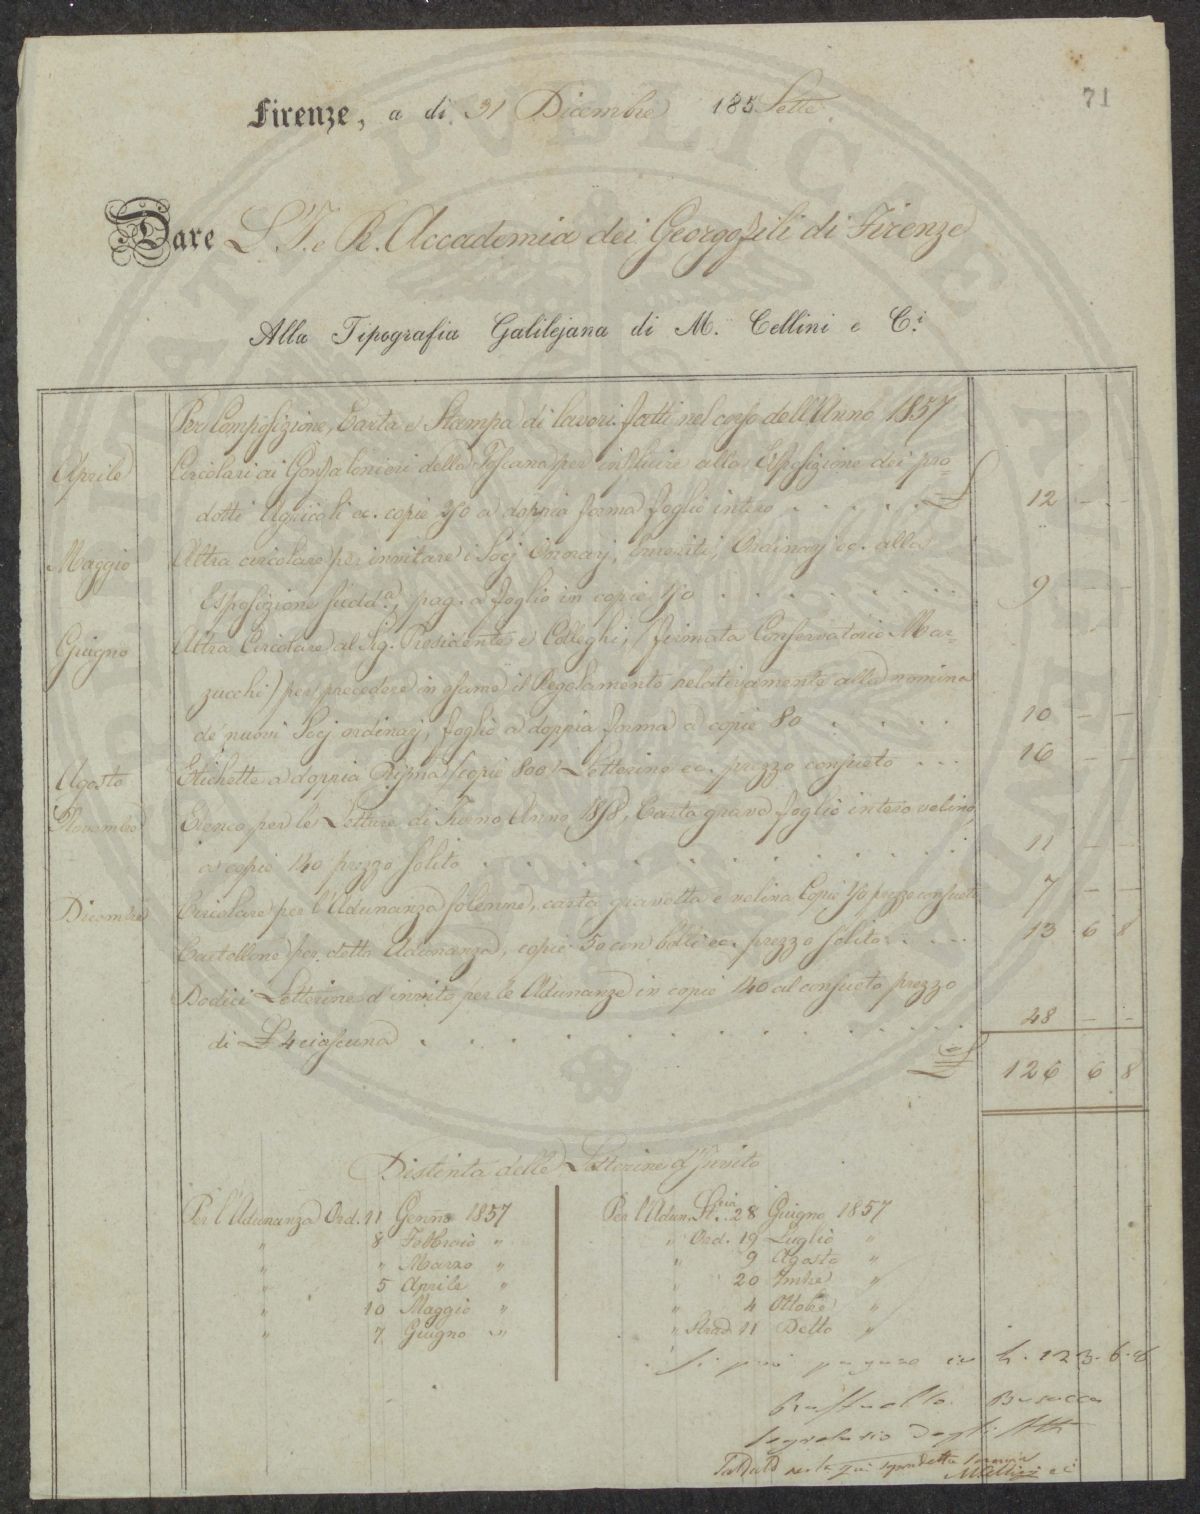 71
Firenze, a di 31 Dicembre 185Sette
Dare L'I. e R. Accademia dei Georgofili di Firenze
Alla Tipografia Galilejana di M. Cellini e C.i
Per Composizione, Carta e Stampa di lavori fatti nel corso dell'Anno 1857
Aprile Circolari ai Gonfalonieri della Toscana per influire alla Esposizione dei pro=
dotti Agricoli ec. copie 250 a doppia forma foglio intero . . . . . £ 12 – –
Maggio Altra circolare per invitare i Socj Onorarj, Emeriti, Ordinarj ec. alla
Esposizione sudd.a, pag. a foglio in copie 150 . . . . . . . . 9 – –
Giugno Altra Circolare al Sig. Presidente e Colleghi, (firmata Conservatorio Mar=
zucchi) per precedere in esame il Regolamento relativamente alla nomina
de' nuovi Socj ordinarj, foglio a doppia forma a copie 80 . . . . . 10 – –
Agosto Etichette a doppia Risma (copie 800) Letterine ec. prezzo consueto . . . 16 – –
Novembre Elenco per le Letture di Turno Anno 1858, Carta grave foglio intero velino,
a copie 140 prezzo solito . . . . . . . . . . . . 11 – –
Dicembre Circolare per l'Adunanza solenne, carta gravetta e velina Copie 150 prezzo consueto 7 – –
Cartellone per detta Adunanza, copie 50 con bolli ec. prezzo solito . . . . 13 6 8
Dodici Letterine d'invito per le Adunanze in copie 140 al consueto prezzo
di £ 4 ciascuna . . . . . . . . . . . . 48 – –
£ 126 6 8
Distinta delle Letterine d'Invito
Per l'Adunanza Ord. 11 Genno 1857
" 8 Febbraio "
" " Marzo "
" 5 Aprile "
" 10 Maggio "
" 7 Giugno "
Per l'Adun. St.ria 28 Giugno 1857
" Ord. 19 Luglio "
" 9 Agosto "
" 20 7mbre "
" 4 Ottobre "
" Strad 11 Detto "
Si può pagare in L. 123. 6. 8
Raffaello Busacca
Segretario degli Atti
M Cellini e C